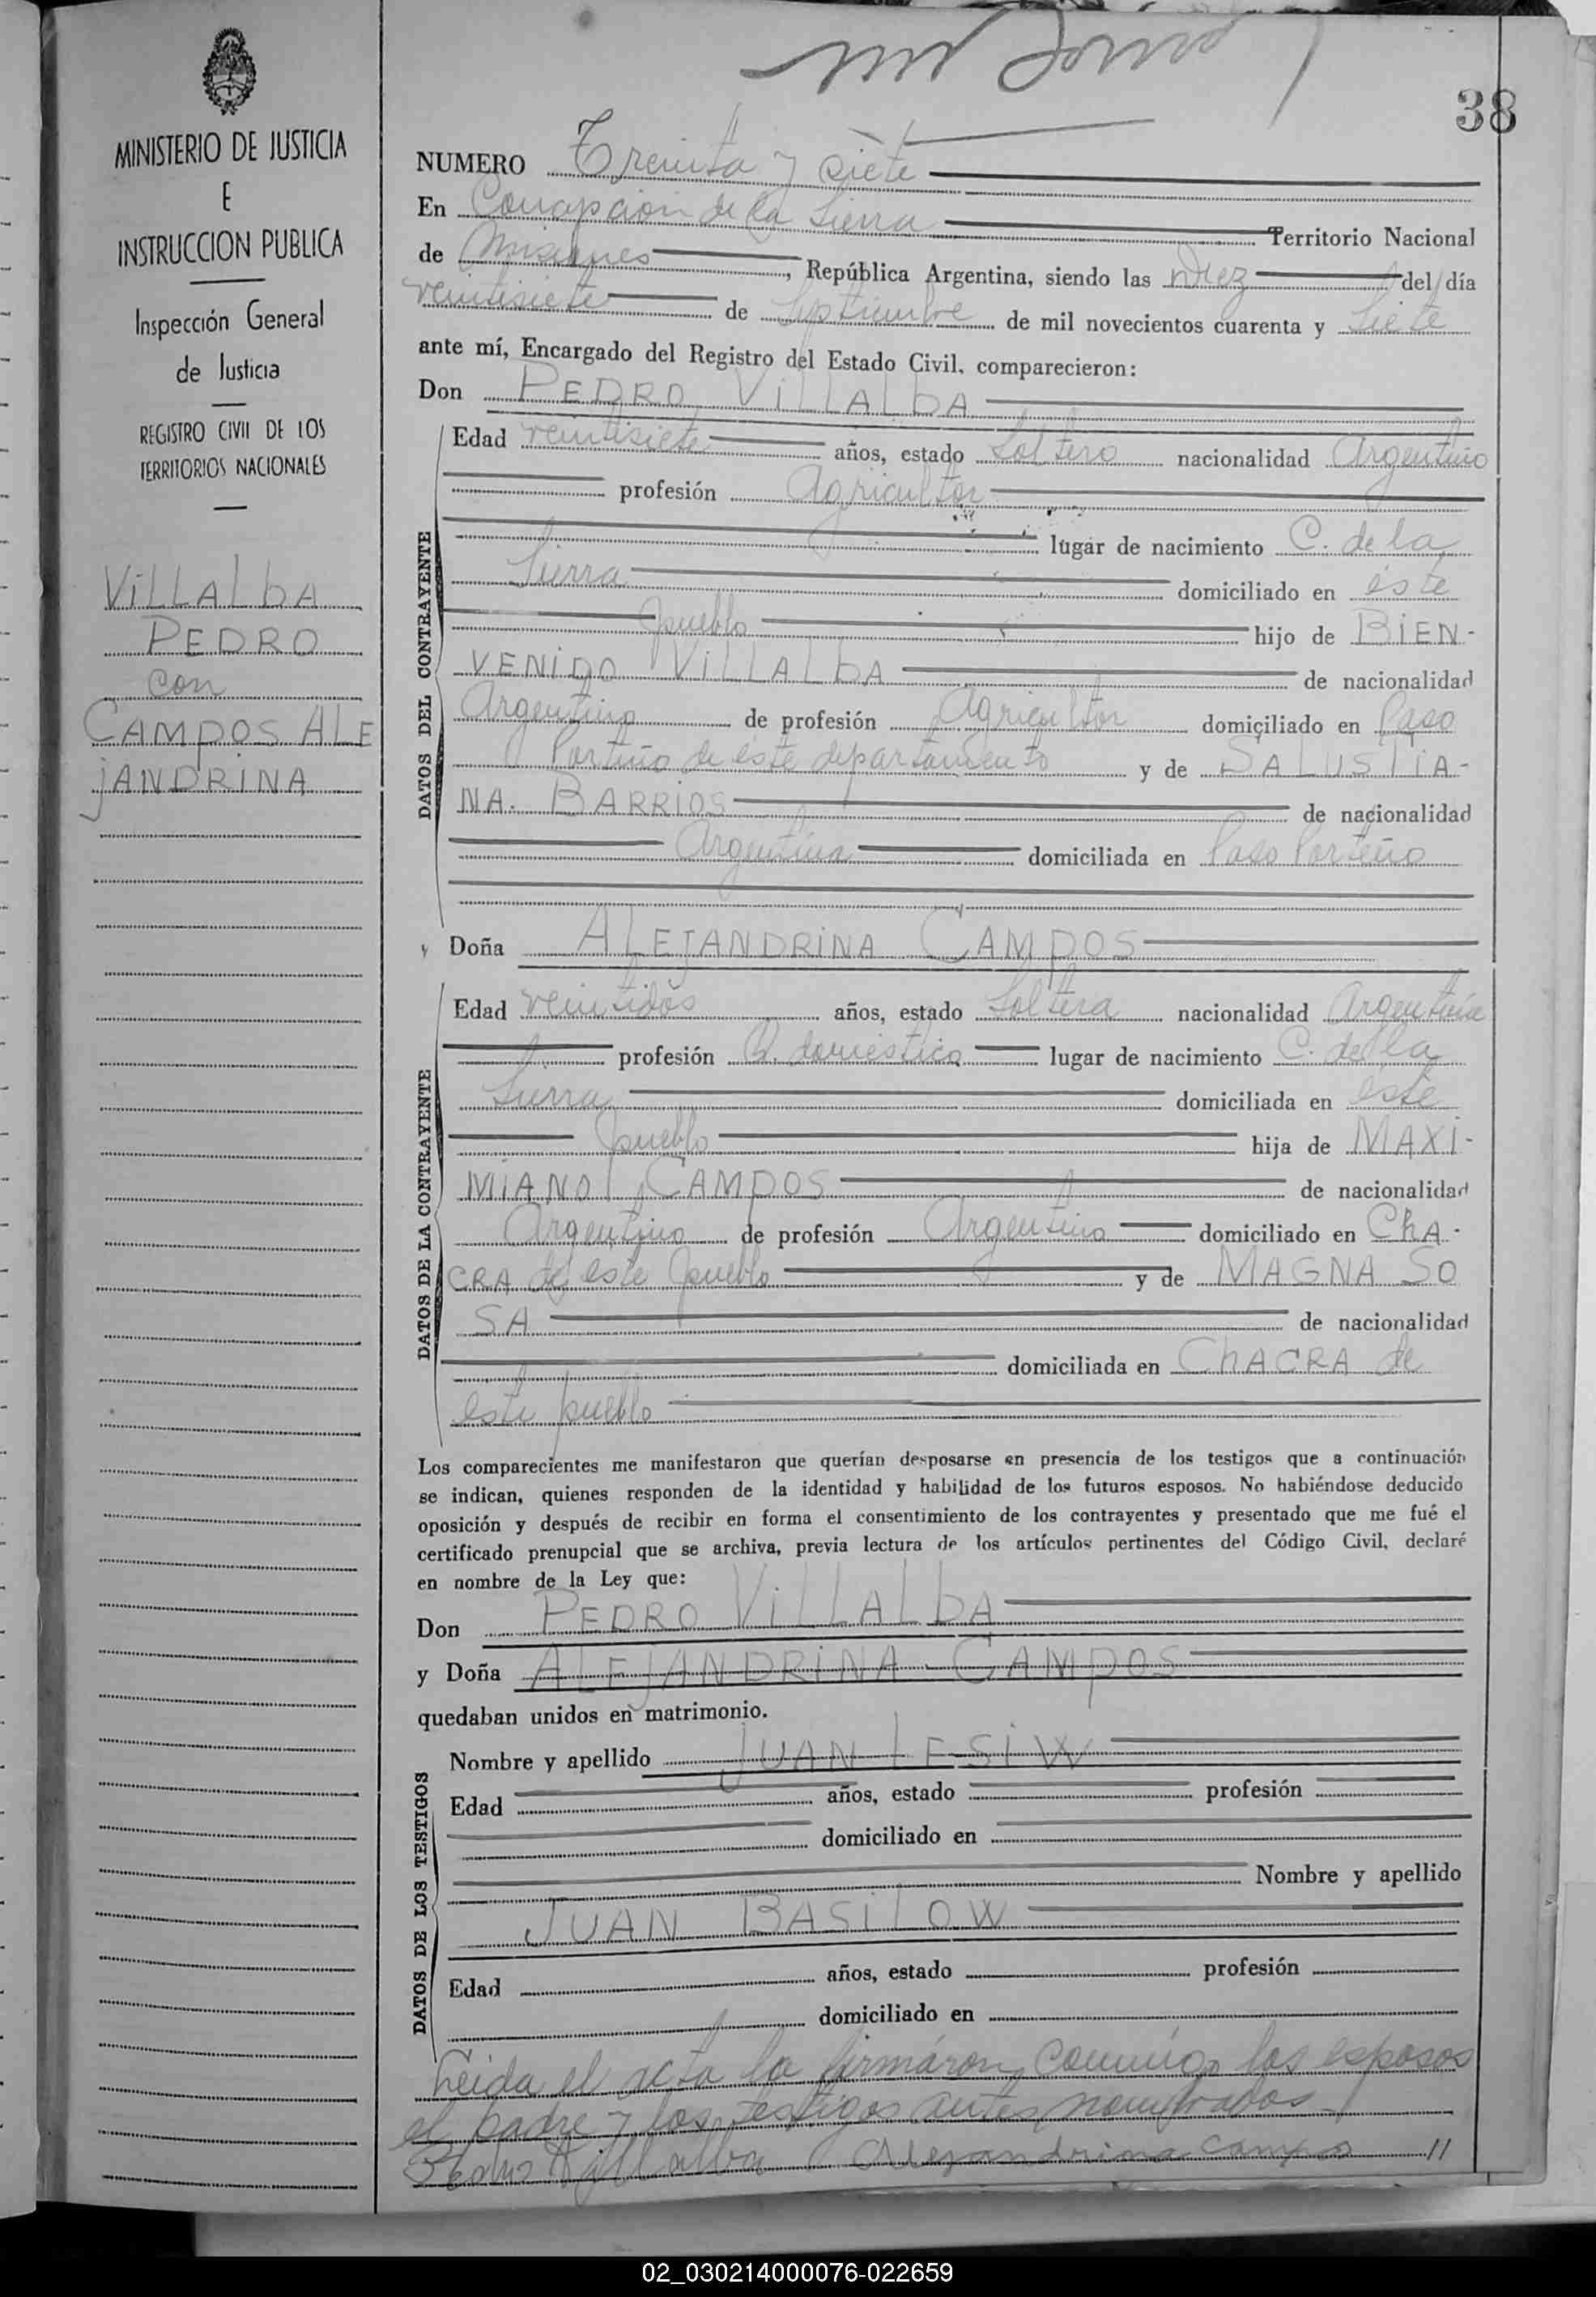 38
MINISTERIO DE JUSTICIA
E
INSTRUCCION PUBLICA
Inspección General
de Justicia
REGISTRO CIVIL DE LOS
TERRITORIOS NACIONALES
VILLALBA
PEDRO
con
CAMPOS ALE
JANDRINA
NUMERO Treinta y siete
En Concepcion de la Sierra Territorio Nacional
de Misiones, República Argentina, siendo las Diez del día
veintisiete de Septiembre de mil novecientos cuarenta y siete
ante mí, Encargado del Registro del Estado Civil, comparecieron:
Don PEDRO VILLALBA
DATOS DEL CONTRAYENTE
Edad veintisiete años, estado Soltero nacionalidad Argentino
profesión Agricultor
lugar de nacimiento C. de la
Sierra domiciliado en éste
pueblo hijo de BIEN-
VENIDO VILLALBA de nacionalidad
Argentino de profesión Agricultor domiciliado en Paso
Porteño de éste departamento y de SALUSTIA-
NA. BARRIOS de nacionalidad
Argentina domiciliada en Paso Porteño
y Doña ALEJANDRINA CAMPOS
DATOS DE LA CONTRAYENTE
Edad veintidós años, estado Soltera nacionalidad Argentina
profesión Q. domestico lugar de nacimiento C. de la
Sierra domiciliada en éste
pueblo hija de MAXI-
MIANO CAMPOS de nacionalidad
Argentino de profesión Argentino domiciliado en CHA-
CRA de este pueblo y de MAGNA SO
SA de nacionalidad
domiciliada en CHACRA de
este pueblo
Los comparecientes me manifestaron que querían desposarse en presencia de los testigos que a continuación
se indican, quienes responden de la identidad y habilidad de los futuros esposos. No habiéndose deducido
oposición y después de recibir en forma el consentimiento de los contrayentes y presentado que me fué el
certificado prenupcial que se archiva, previa lectura de los artículos pertinentes del Código Civil, declaré
en nombre de la Ley que:
Don PEDRO VILLALBA
y Doña ALEJANDRINA CAMPOS
quedaban unidos en matrimonio.
DATOS DE LOS TESTIGOS
Nombre y apellido JUAN LESIW
Edad años, estado profesión
domiciliado en
Nombre y apellido
JUAN BASILOW
Edad años, estado profesión
domiciliado en
Leida el acta la firmáron conmigo los esposos
el padre y los testigos antes nombrados
Pedro Villalba Alejandrina Campos //
02_030214000076-022659